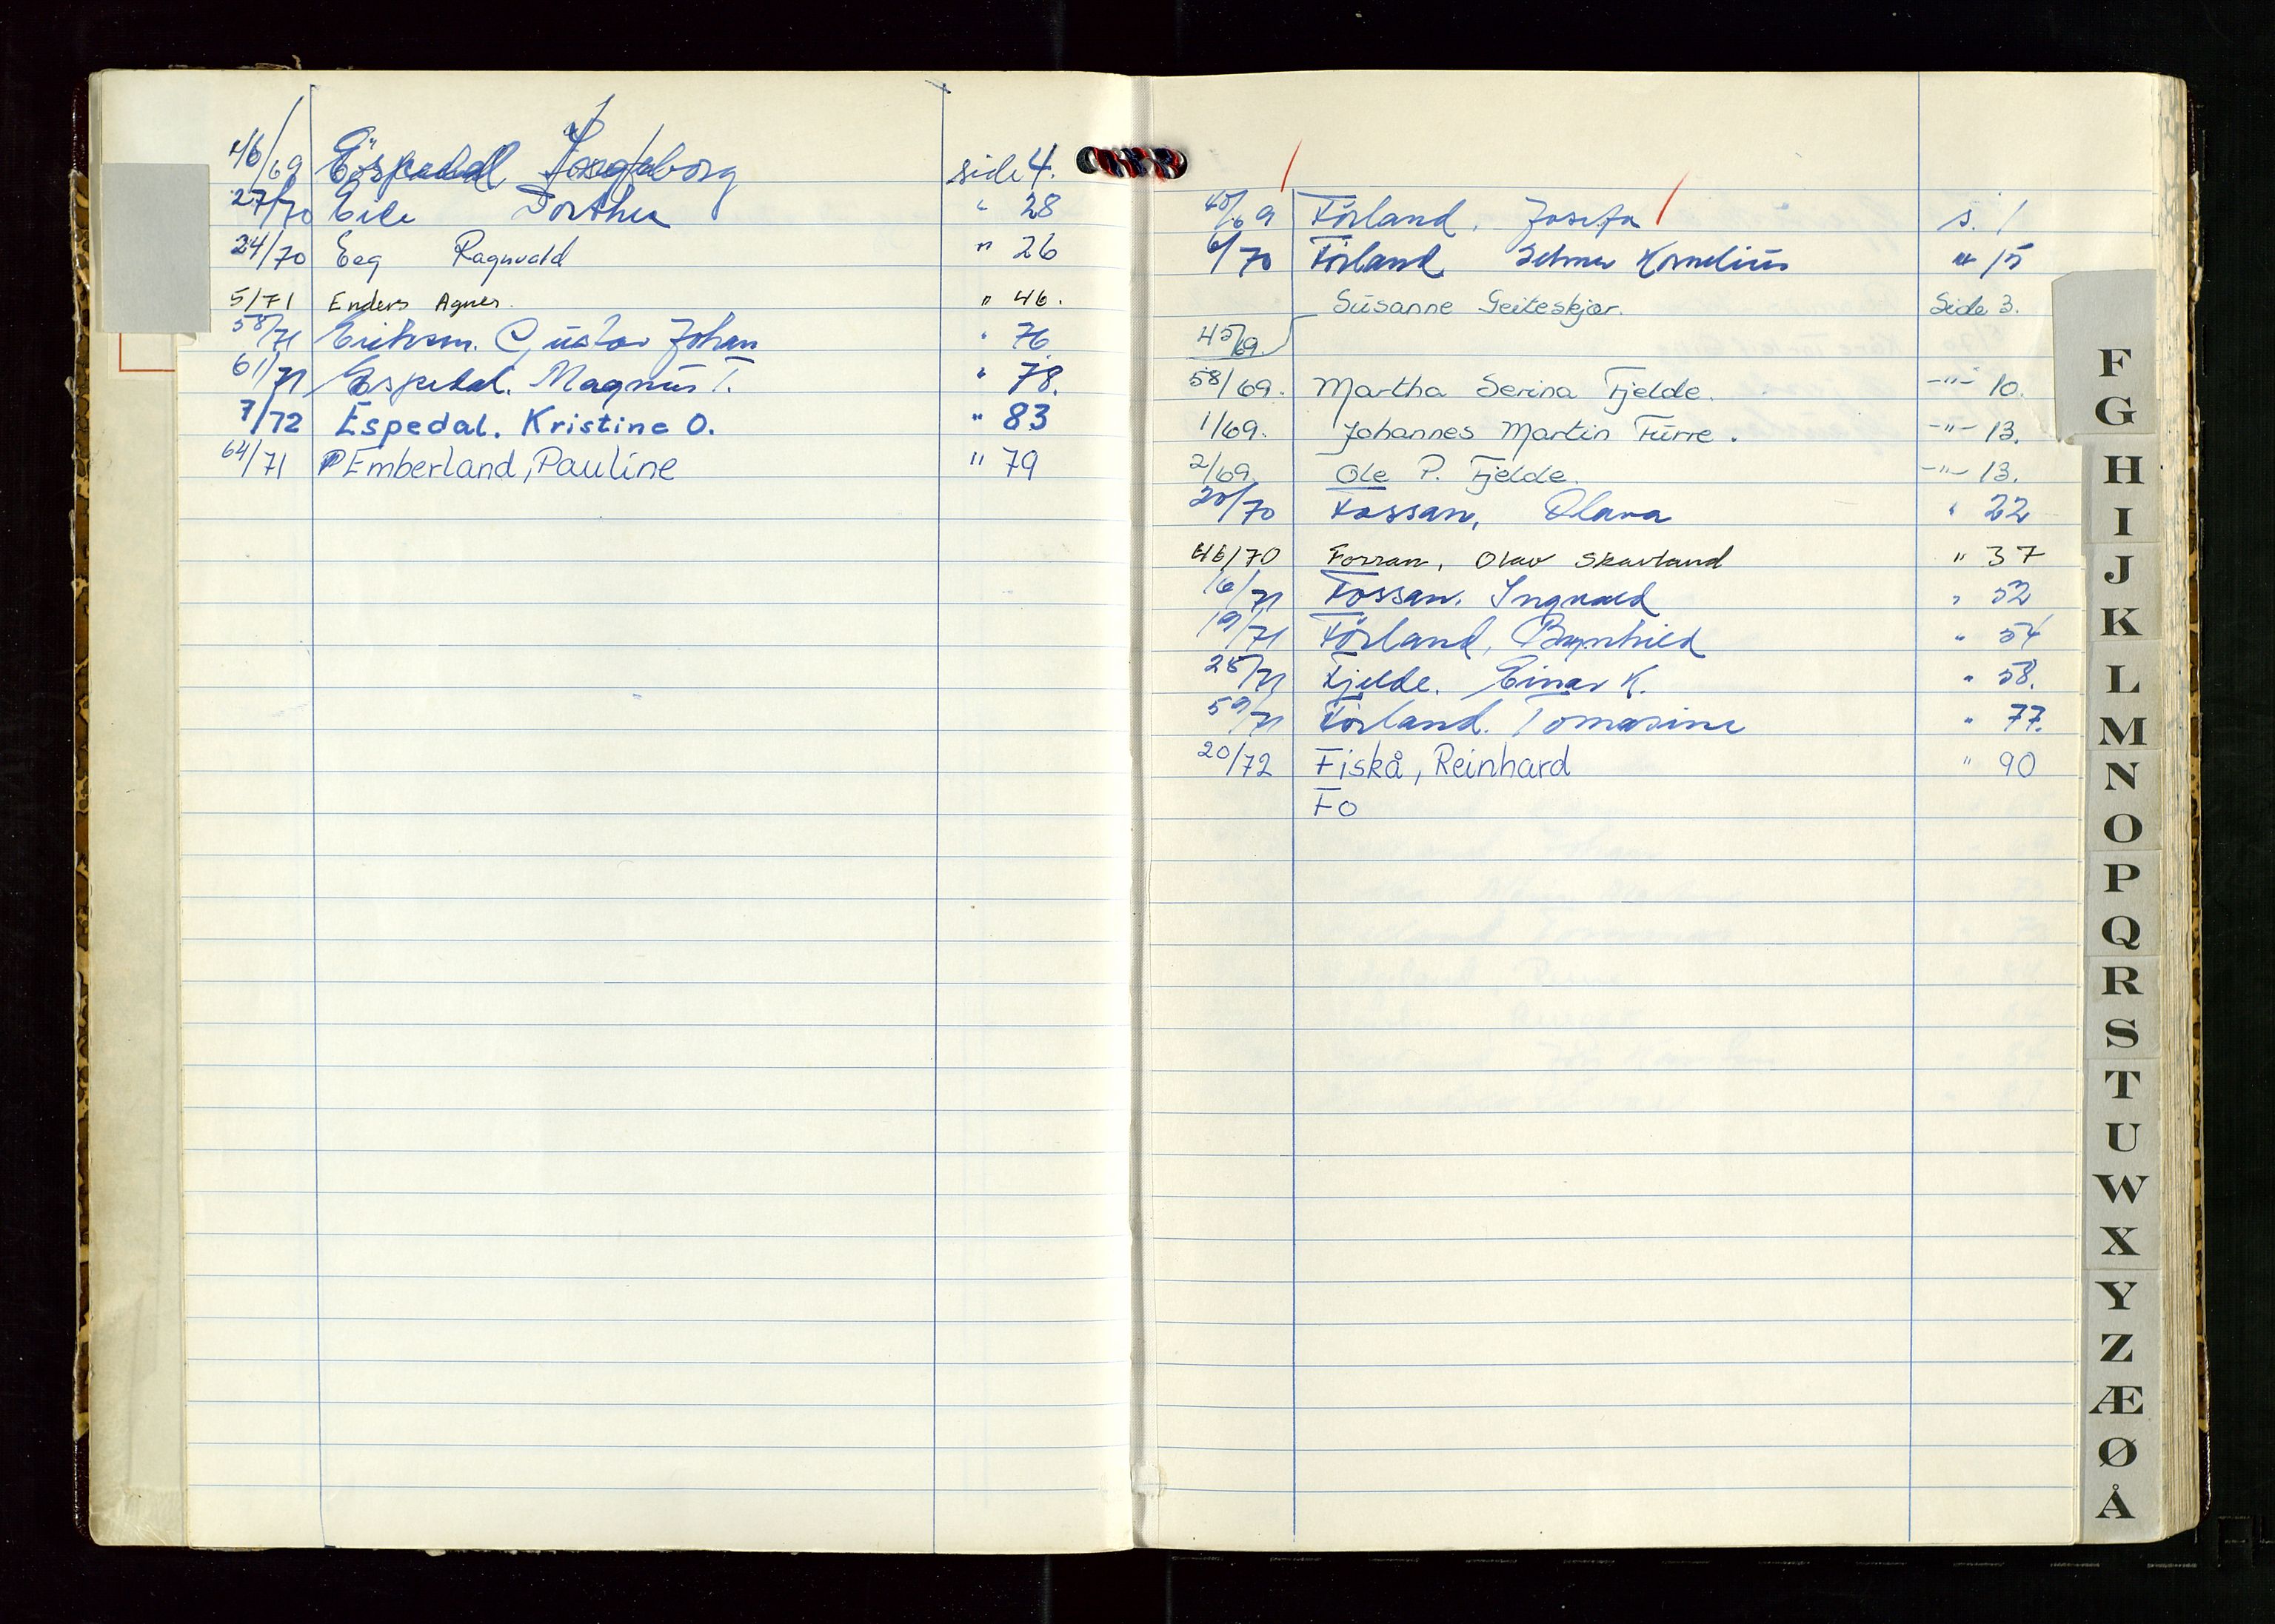 46/69 Espedal Ingeborg side 4.
27/70 Eide Dorthea " 28
24/70 Eeg Ragnvald " 26
5/71 Enders Agnes. " 46.
58/71 Eriksen. Gustav Johan " 76
61/71 Espedal. Magnus T. " 78.
7/72 Espedal. Kristine O. " 83
64/71 Emberland, Pauline " 79
/69 Förland, Josefa s. 1
6/70 Förland Selmer Kornelius " 15
Susanne Geiteskjær. Side 3.
45/69.
58/69. Martha Serina Fjelde. -"- 10.
1/69. Johannes Martin Furre. -"- 13.
2/69 Ole P. Fjelde. -"- 13.
20/70 Fossan, Olava " 22
46/70 Forran, Olav Skavland " 37
16/71 Fossan. Ingvald " 52
19/71 Förland, Brynhild " 54
28/71 Fjelde. Einar K. " 58.
59/71 Förland. Tomasine " 77.
20/72 Fiskå, Reinhard " 90
Fo
F
G
H
I
J
K
L
M
N
O
P
Q
R
S
T
U
W
X
Y
Z
Æ
Ø
Å